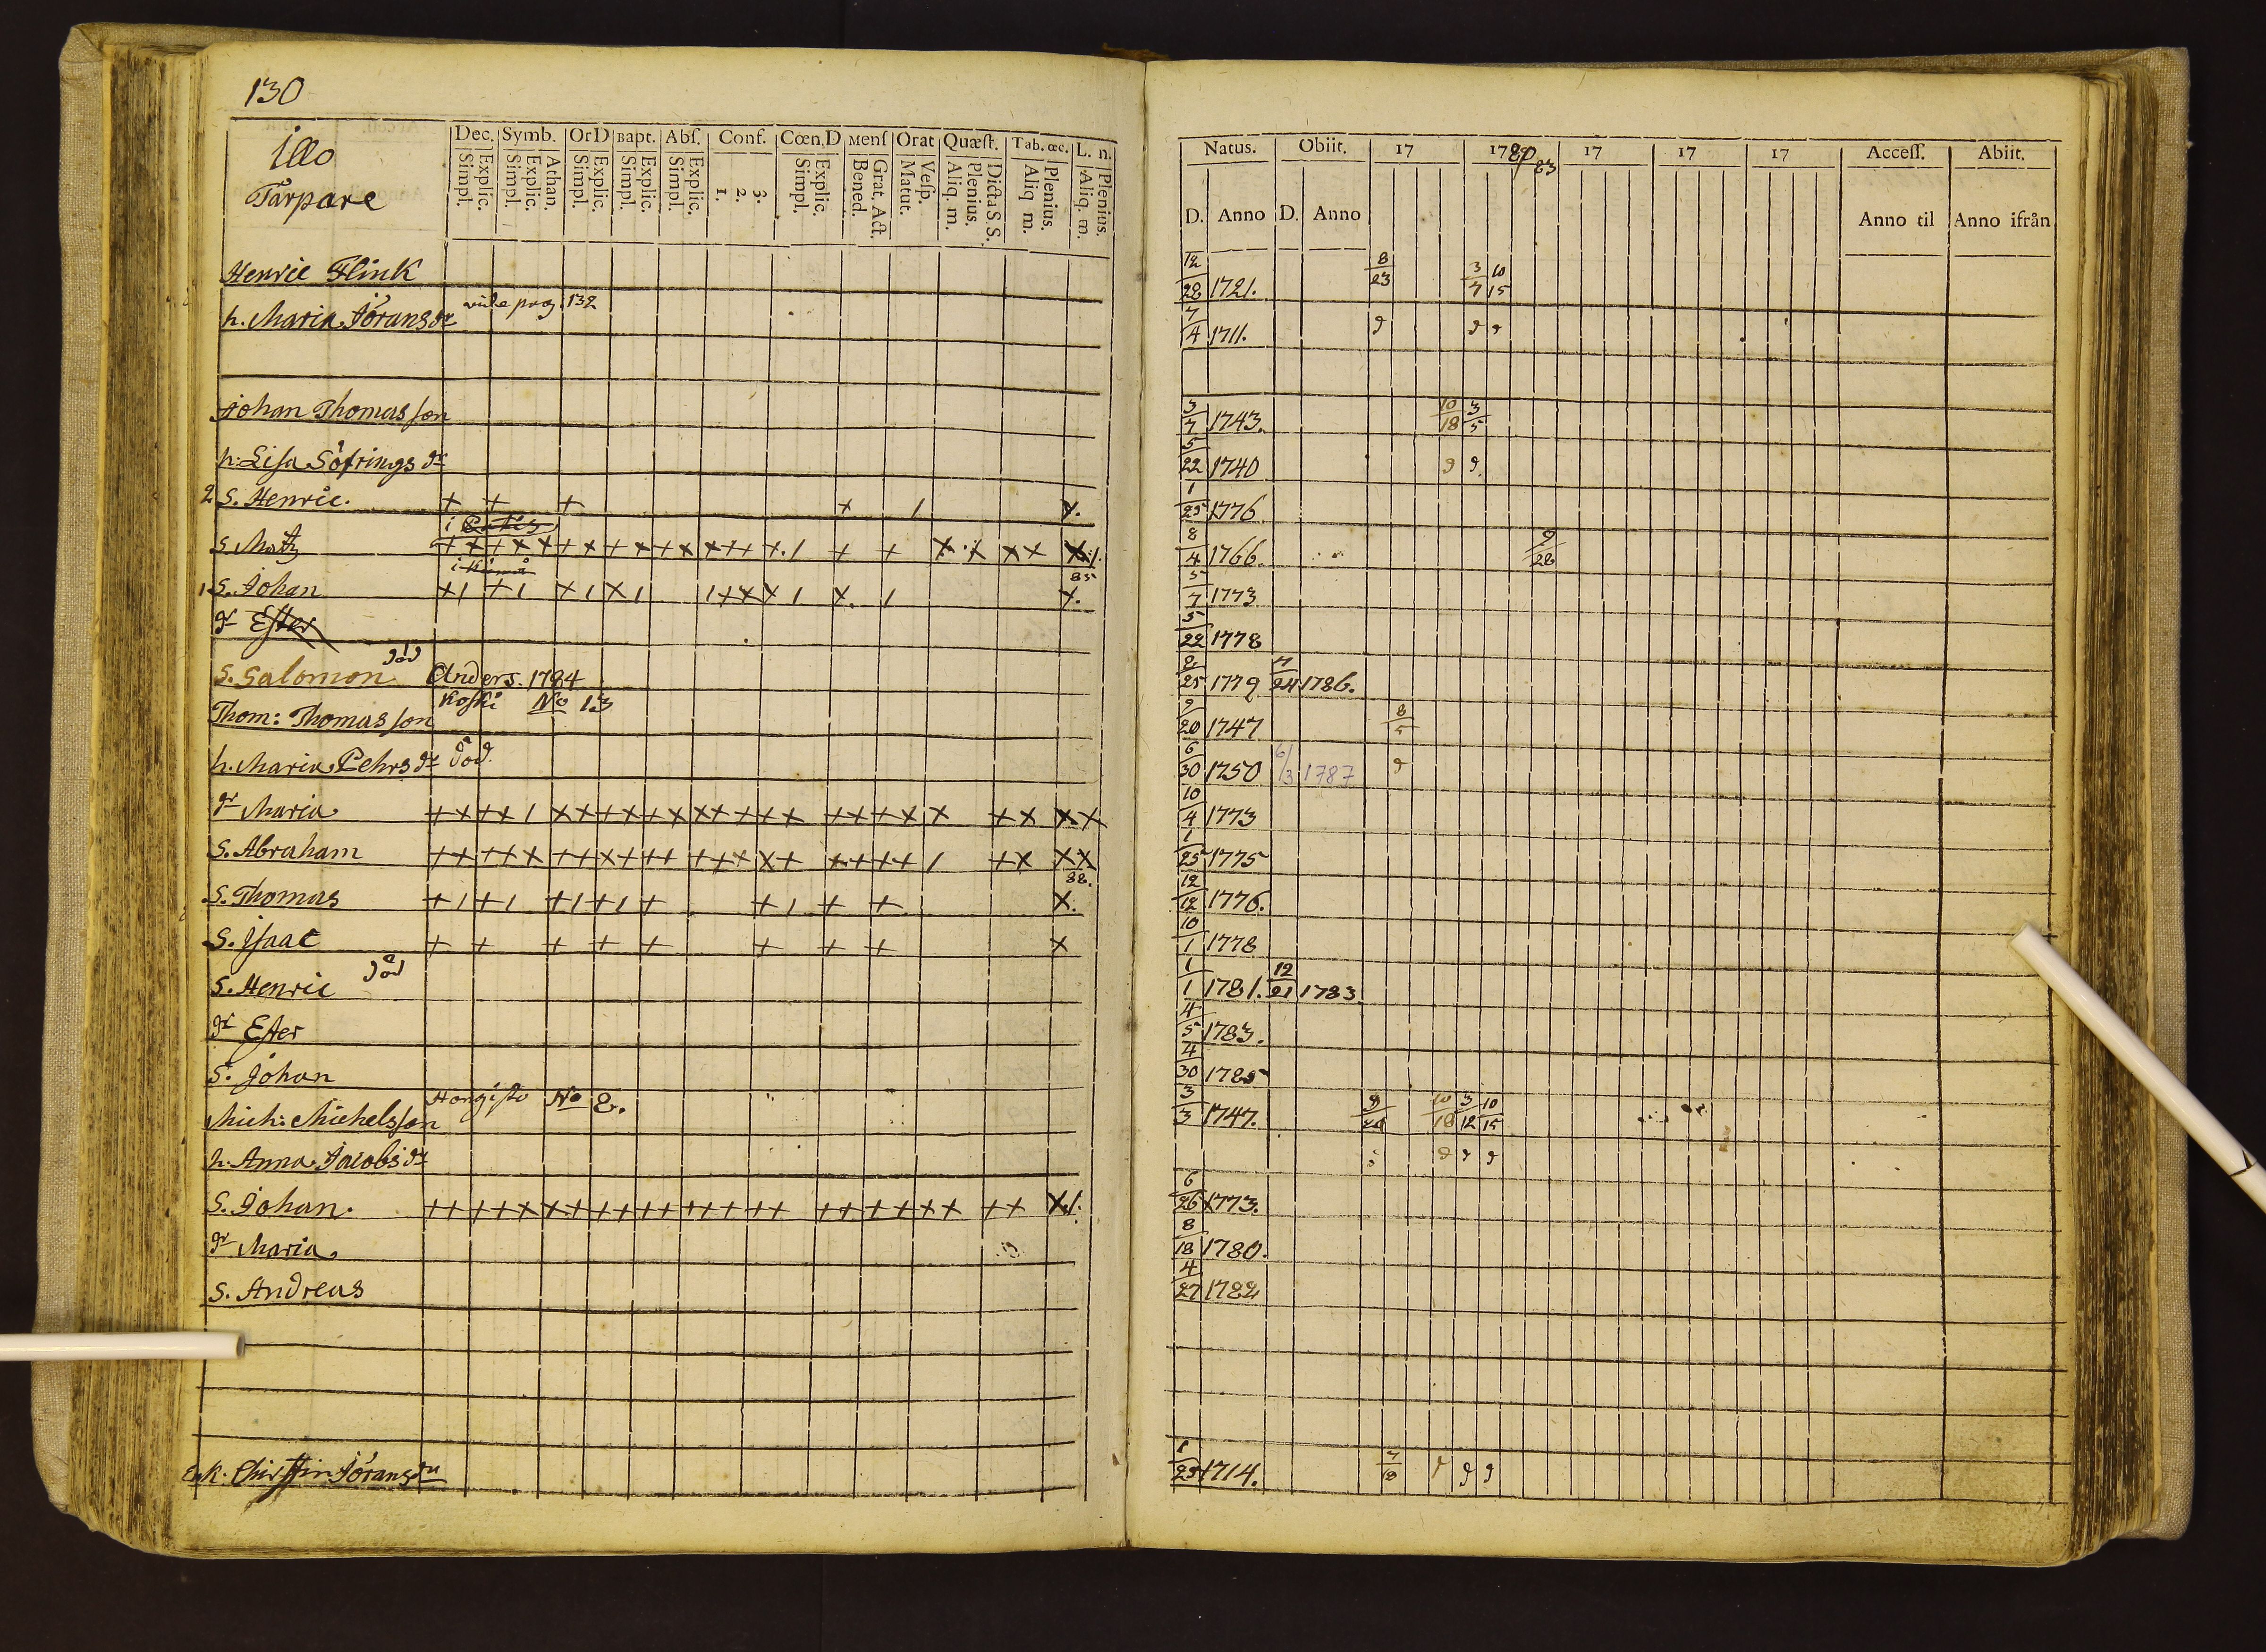 130
Illo
Torpare
Dec. Symb. OrD Bapt. Abſ. Conf. Cœn.D Menſ Orat Quæſt. Tab. œc. L. n.
Explic. Simpl. Athan. Explic. Simpl. Explic. Simpl. Explic. Simpl. Explic. Simpl. 3. 2. 1. Explic. Simpl. Grat. Act. Bened. Veſp. Matut. Dicta S.S. Plenius. Aliq. m. Plenius. Aliq m. Plenius. Aliq. m.
Natus. Obiit. 17 1780 83 17 17 17 Acceſſ. Abiit.
D. Anno D. Anno Anno til Anno ifrån
Henric Flink 12/28 1721. 8/23 3/7 10/15
vide pag. 132
h. Maria Jöransdr 7/4 1711.
Johan Thomasson 3/7 1743. 10/18 3/5
h: Lisa Söfringsdr 5/22 1740
2 S. Henric. + + + + / x. 1/25 1776
S. Matz 8/4 1766. 9/28
85
1 S. Johan 5/7 1773
dr Ester 5/22 1778
S. Salomon död Anders. 1784 2/25 1779 7/24 1786.
Koski No 13
Thom: Thomasson 9/20 1747 8/5
h. Maria Pehrsdr död. 6/30 1750 6/3 1787
dr Maria 10/4 1773
S. Abraham 1/25 1775
88.
S. Thomas 12/12 1776.
S. Isaac + + + + + + + + x 10/1 1778
S. Henric död 1/1 1781. 12/21 1783
dr Ester 4/5 1783.
S. Johan 4/30 1785
Hongisto No 2.
Mich: Michelsson 3/3 1747. 10/18 3/12 10/15
h. Anna Jacobsdr
S. Johan. 6/26 1773.
dr Maria 8/18 1780.
S. Andreas 4/27 1782
Enk. Christin Jöransdr 1/25 1714.